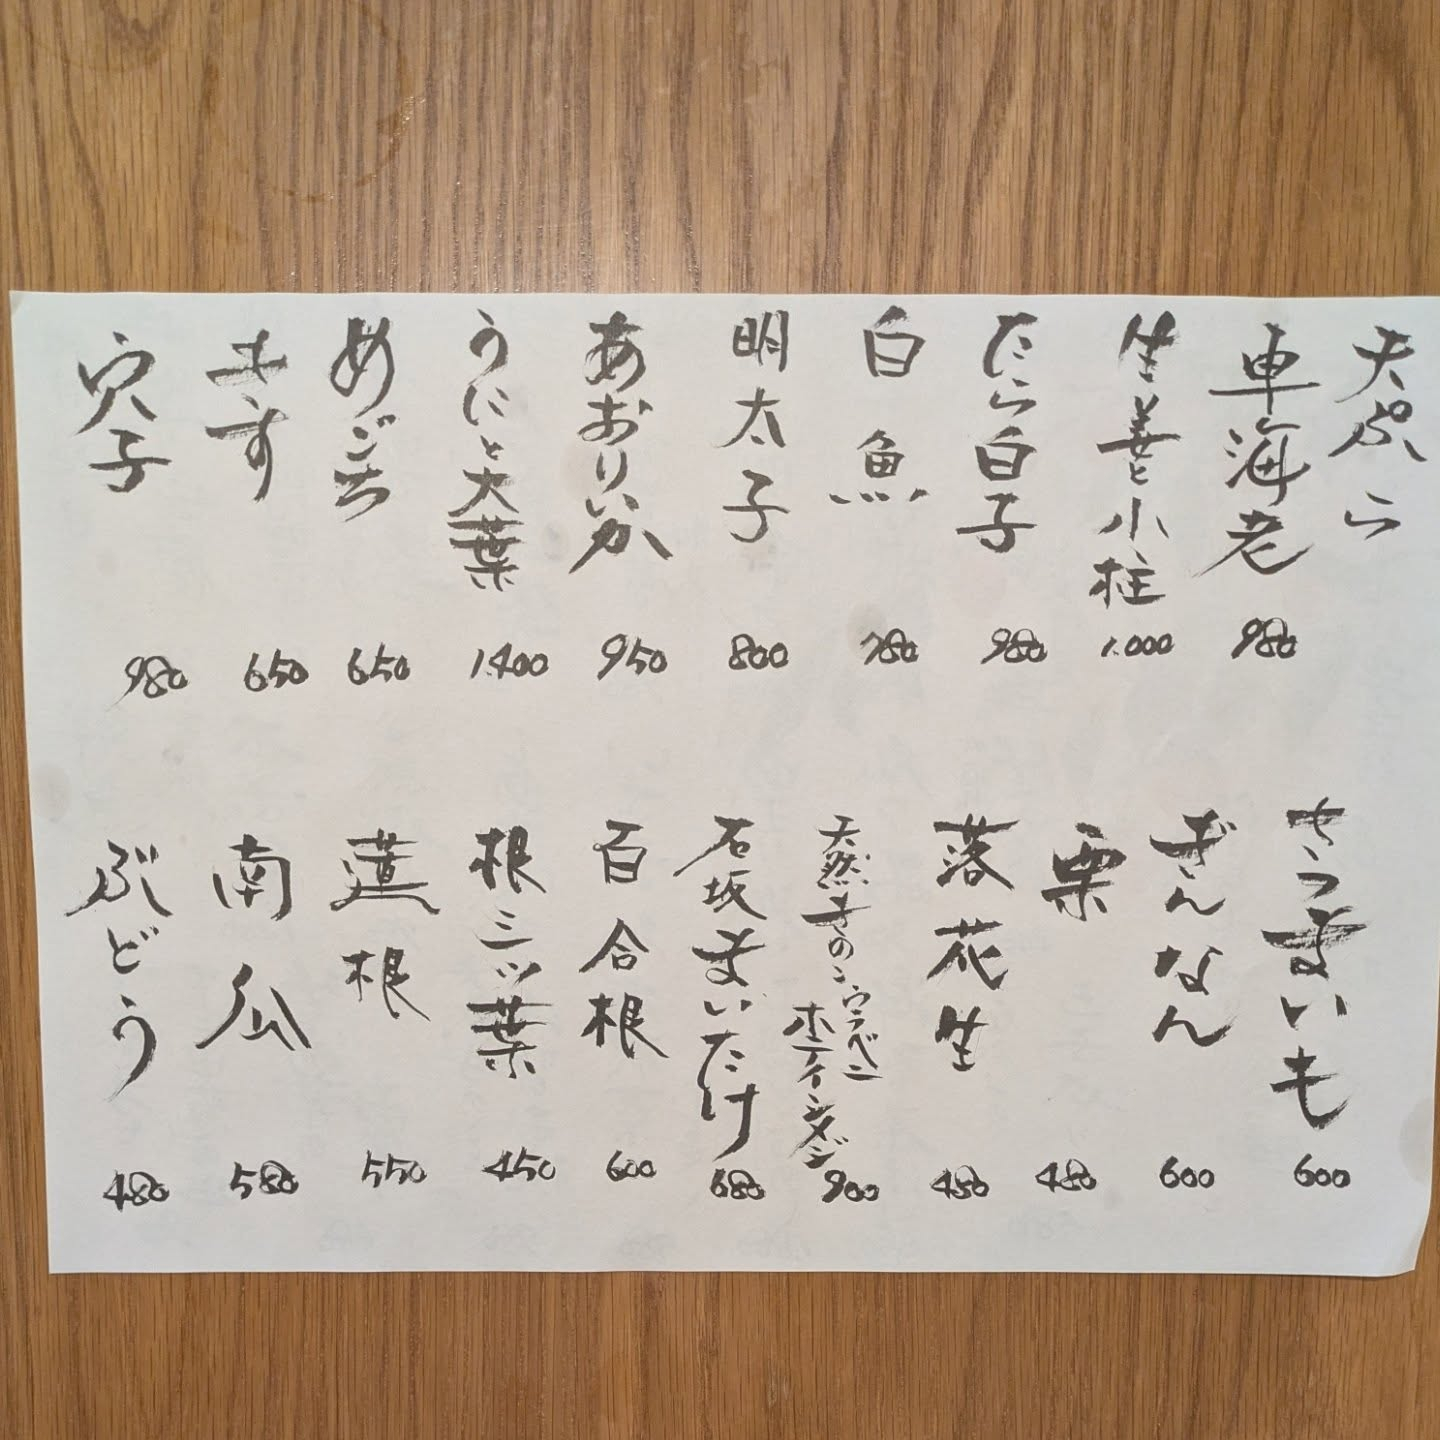 天ぷら
車海老 980
生姜と小柱 1.000
たら白子 980
白魚 780
明太子 800
あおりいか 950
うにと大葉 1.400
めごち 650
きす 650
穴子 980
さつまいも 600
ぎんなん 600
栗 480
落花生 450
天然きのこ ウラベニ ホテイシメジ 900
石坂まいたけ 680
百合根 600
根三ツ葉 450
蓮根 550
南瓜 580
ぶどう 480